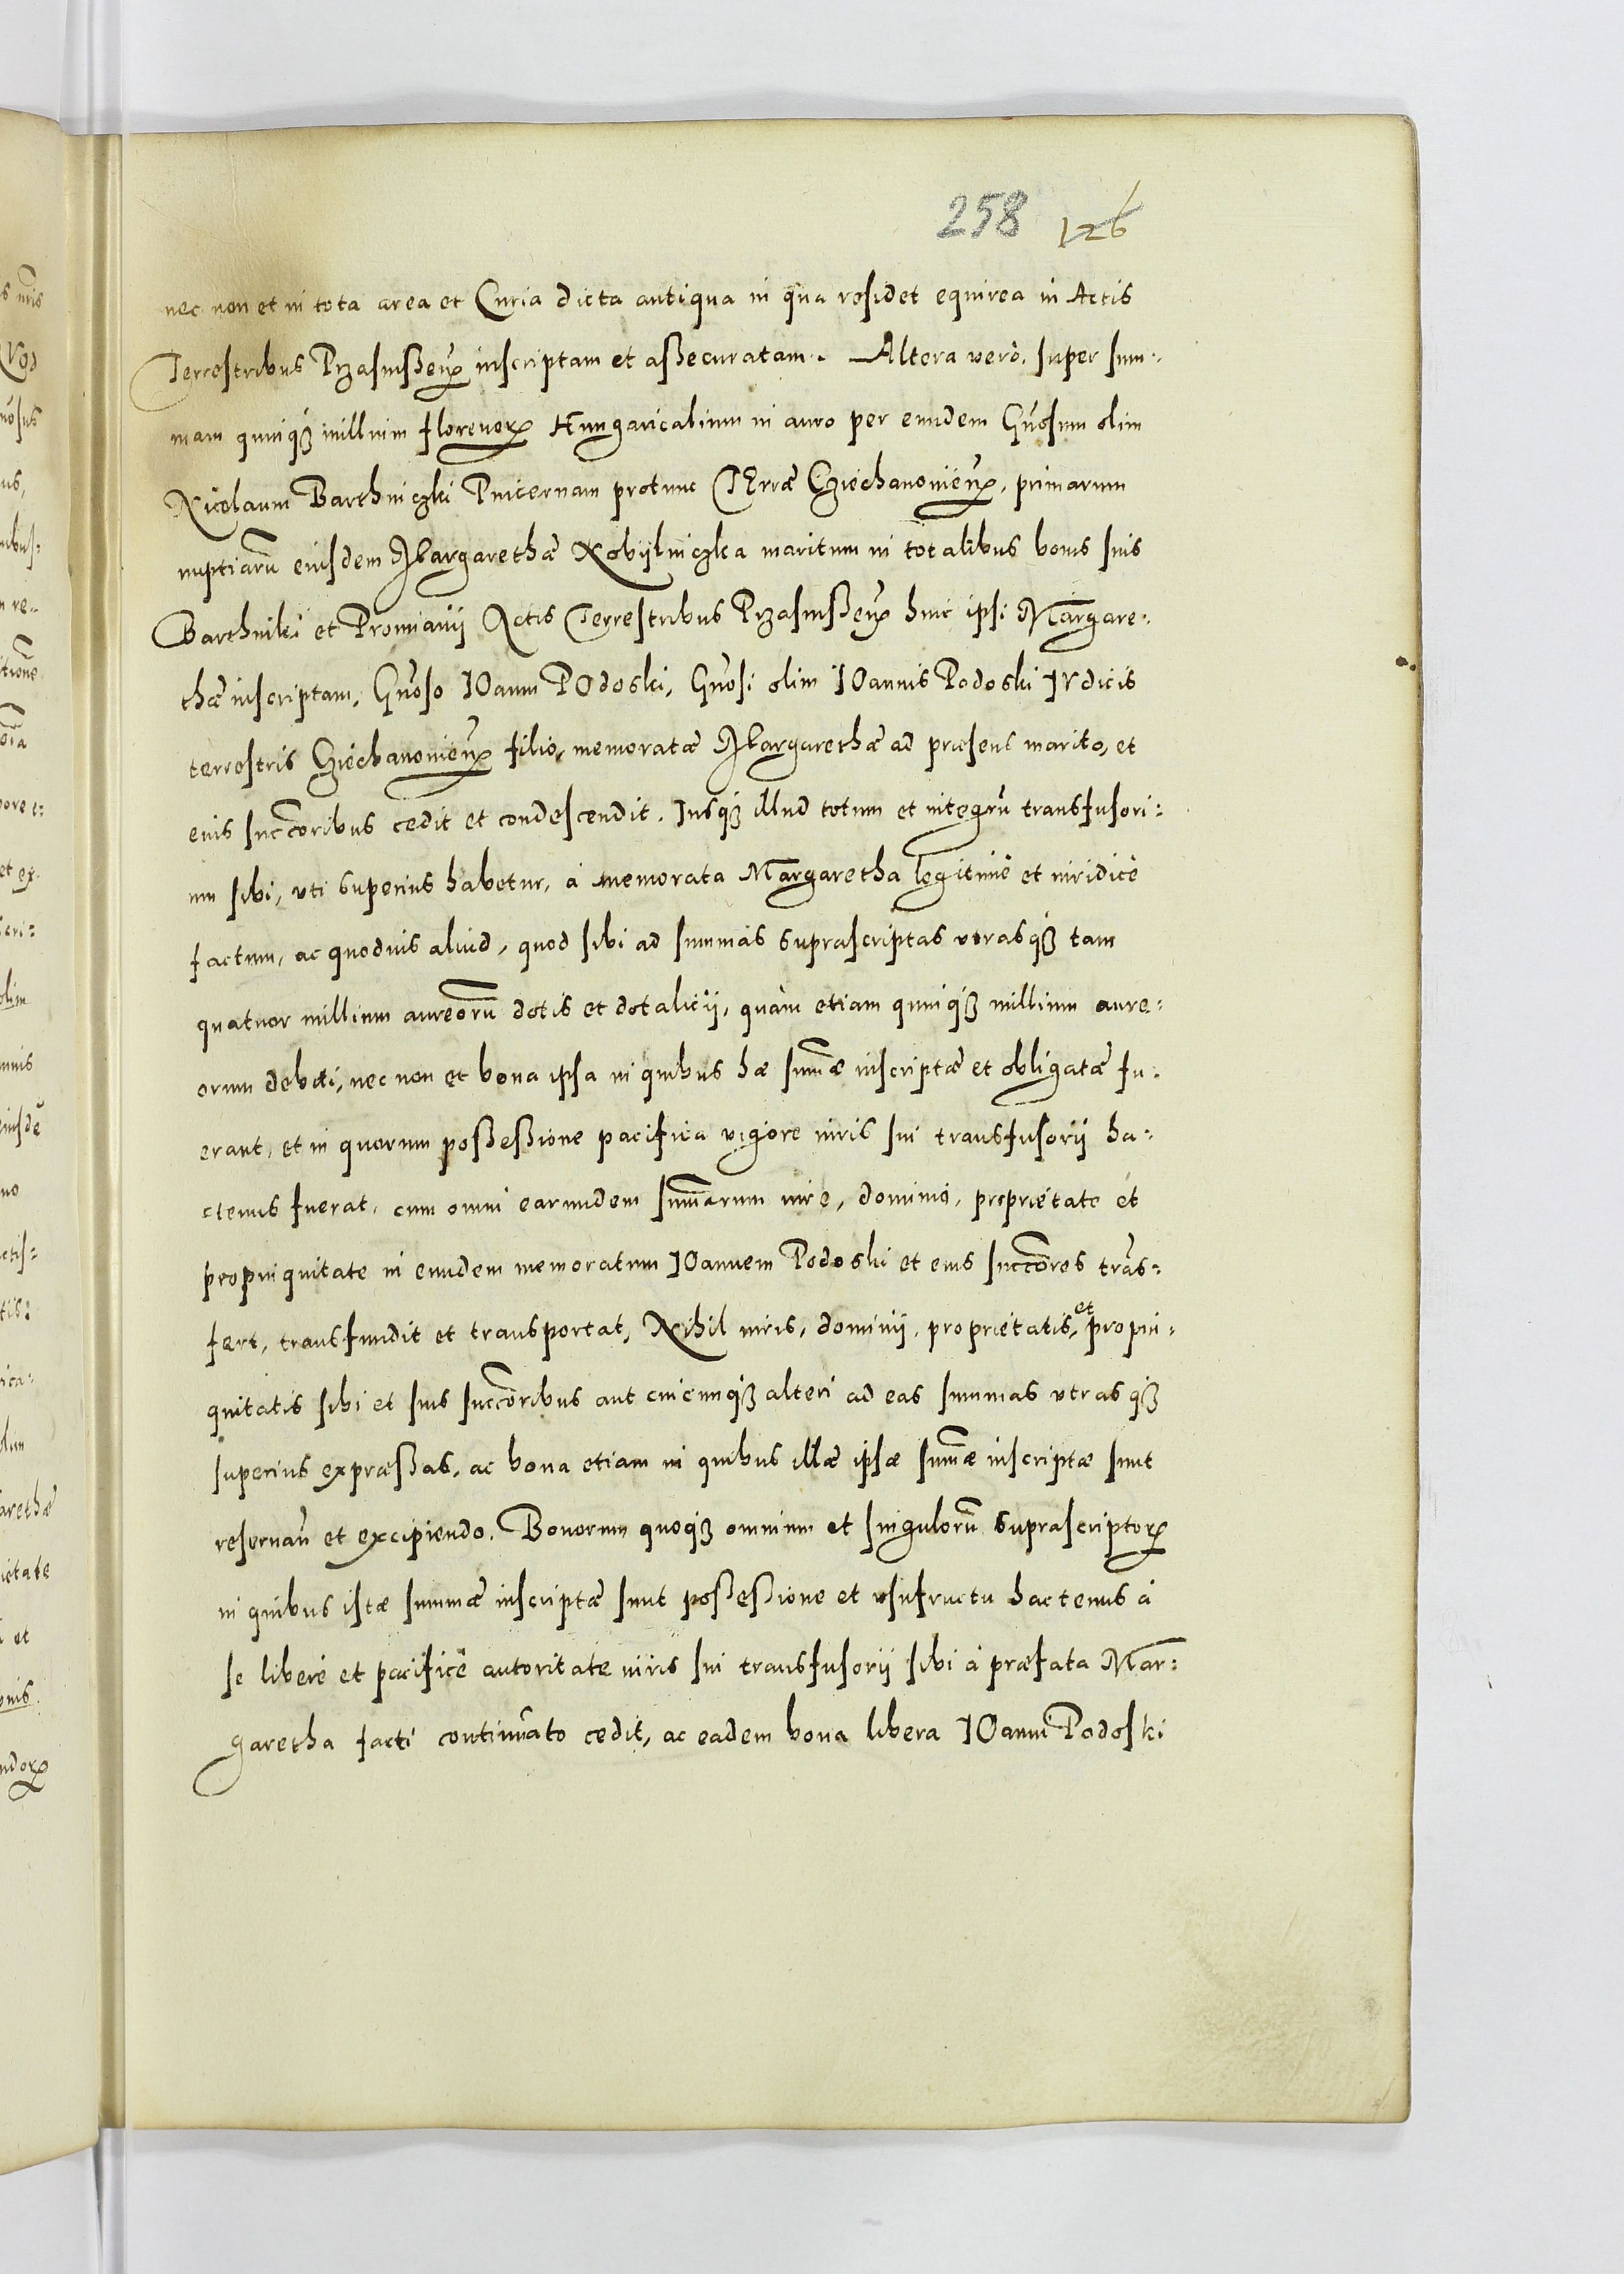 258 126
nec non et in tota area et Curia dicta antiqua in qua residet equirea in Actis
Terrestribus Przasnißeñ inscriptam et aßecuratam. Altera verò super sum-
mam quinqȝ millium florenorꝝ Hungaricalium in auro per eundem Gñosum olim
Nicolaum Barthniczki Pincernam protunc TErræ Cziechanovieñ, primarum
nuptiarũ eiusdem Margarethæ Kobijlniczka maritum in totalibus bonis suis
Barthniki et Promianÿ Actis Terrestribus Przasnißeñ huic ipsi Margare-
thæ inscriptam, Gñoso IOanni POdoski, Gñosi olim IOannis Podoski IVdicis
terrestris Cziechanovieñ filio, memoratæ Margarethæ ad præsens marito, et
eius succõribus cedit et condescendit. Iusqȝ illud totum et integrũ transfusori-
um sibi, vti superius habetur, à memorata Margaretha legitimè et iuridicè
factum, ac quoduis aliud, quod sibi ad summas suprascriptas vtrasqȝ tam
quatuor millium aureorũ dotis et dotalicij, quàm etiam quinqȝ millium aure-
orum debiti, nec non et bona ipsa in quibus hæ sum̃æ inscriptæ et obligatæ fu-
erant, et in quorum poßeßione pacifica vigore iuris sui transfusorij ha-
ctenus fuerat, cum omni earundem sum̃arum iure, dominio, proprietate et
propinquitate in eundem memoratum IOannem Podoski et eius succõres trãs-
fert, transfundit et transportat, Nihil iuris, dominij, proprietatis, et propin-
quitatis sibi et suis succõribus aut cuicunqȝ alteri ad eas summas vtrasqȝ
superius expræßas, ac bona etiam in quibus illæ ipsæ sum̃æ inscriptæ sunt
reseruañ et excipiendo. Bonorum quoqȝ omnium et singulorũ suprascriptorꝝ
in quibus istæ summæ inscriptæ sunt poßeßione et vsufructu hactenus à
se liberè et pacificè autoritate iuris sui transfusorij sibi à præfata Mar-
garetha facti continuato cedit, ac eadem bona libera IOanni Podoski